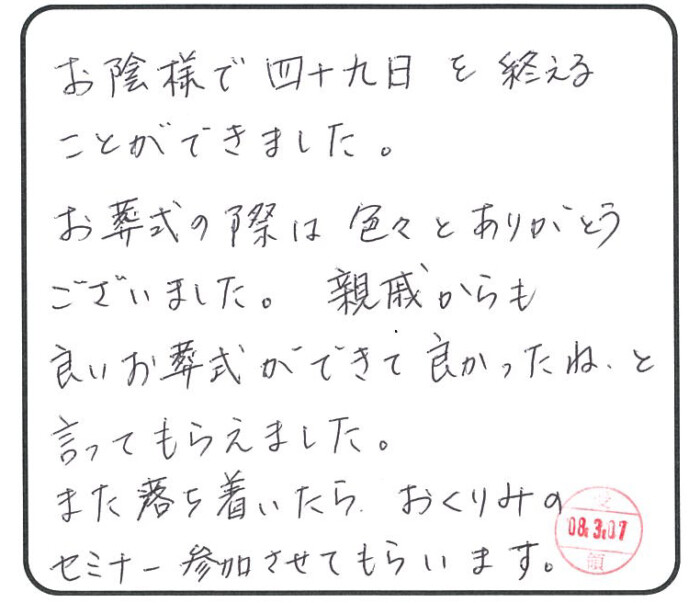 お陰様で 四十九日 を 終える
ことができました。
お葬式の際は 色々とありがとう
ございました。 親戚からも
良いお葬式ができて良かったね、と
言ってもらえました。
また落ち着いたら、おくりみの
セミナー参加させてもらいます。
受
'08.3.07
領